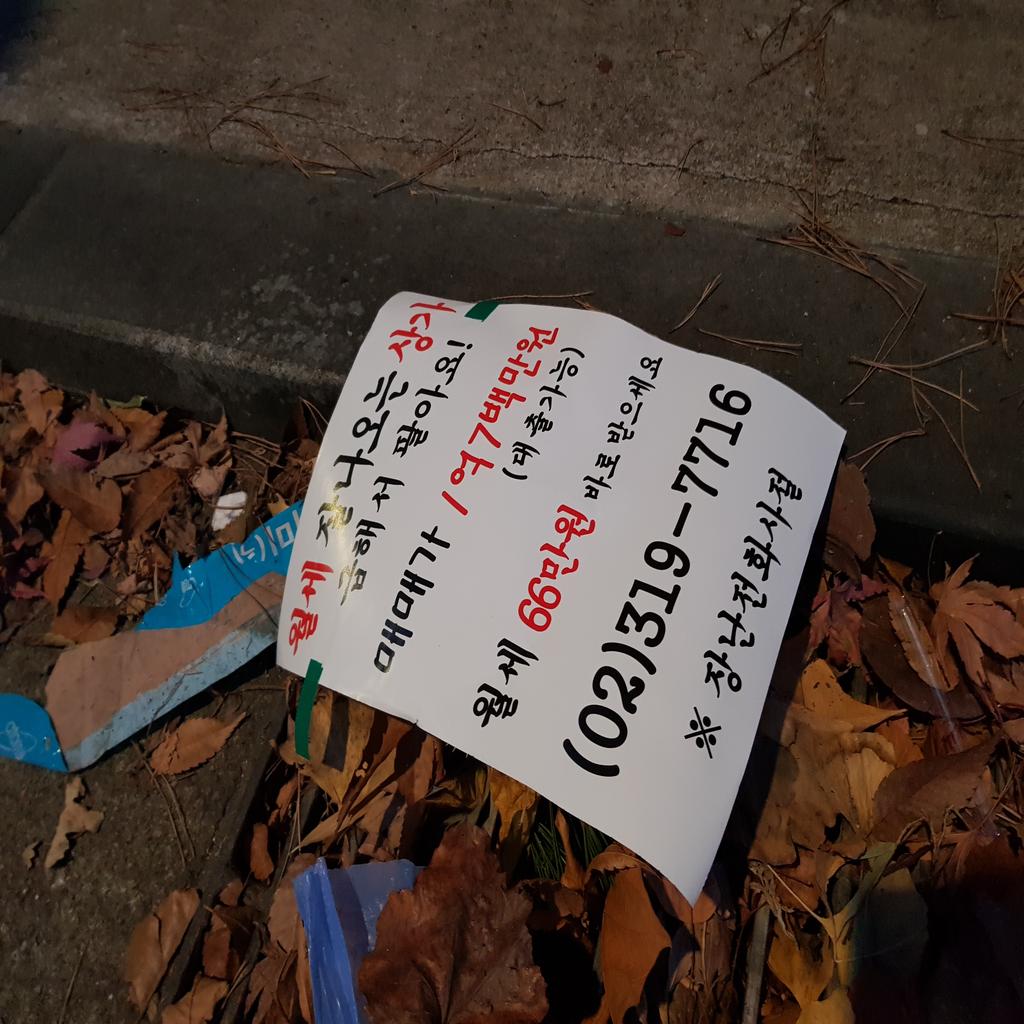 월세 잘나오는 상가
급해서 팔아요!
매매가 1억7백만원
(대출가능)
월세 66만원 바로 받으세요
(02)319-7716
※ 장난전화사절